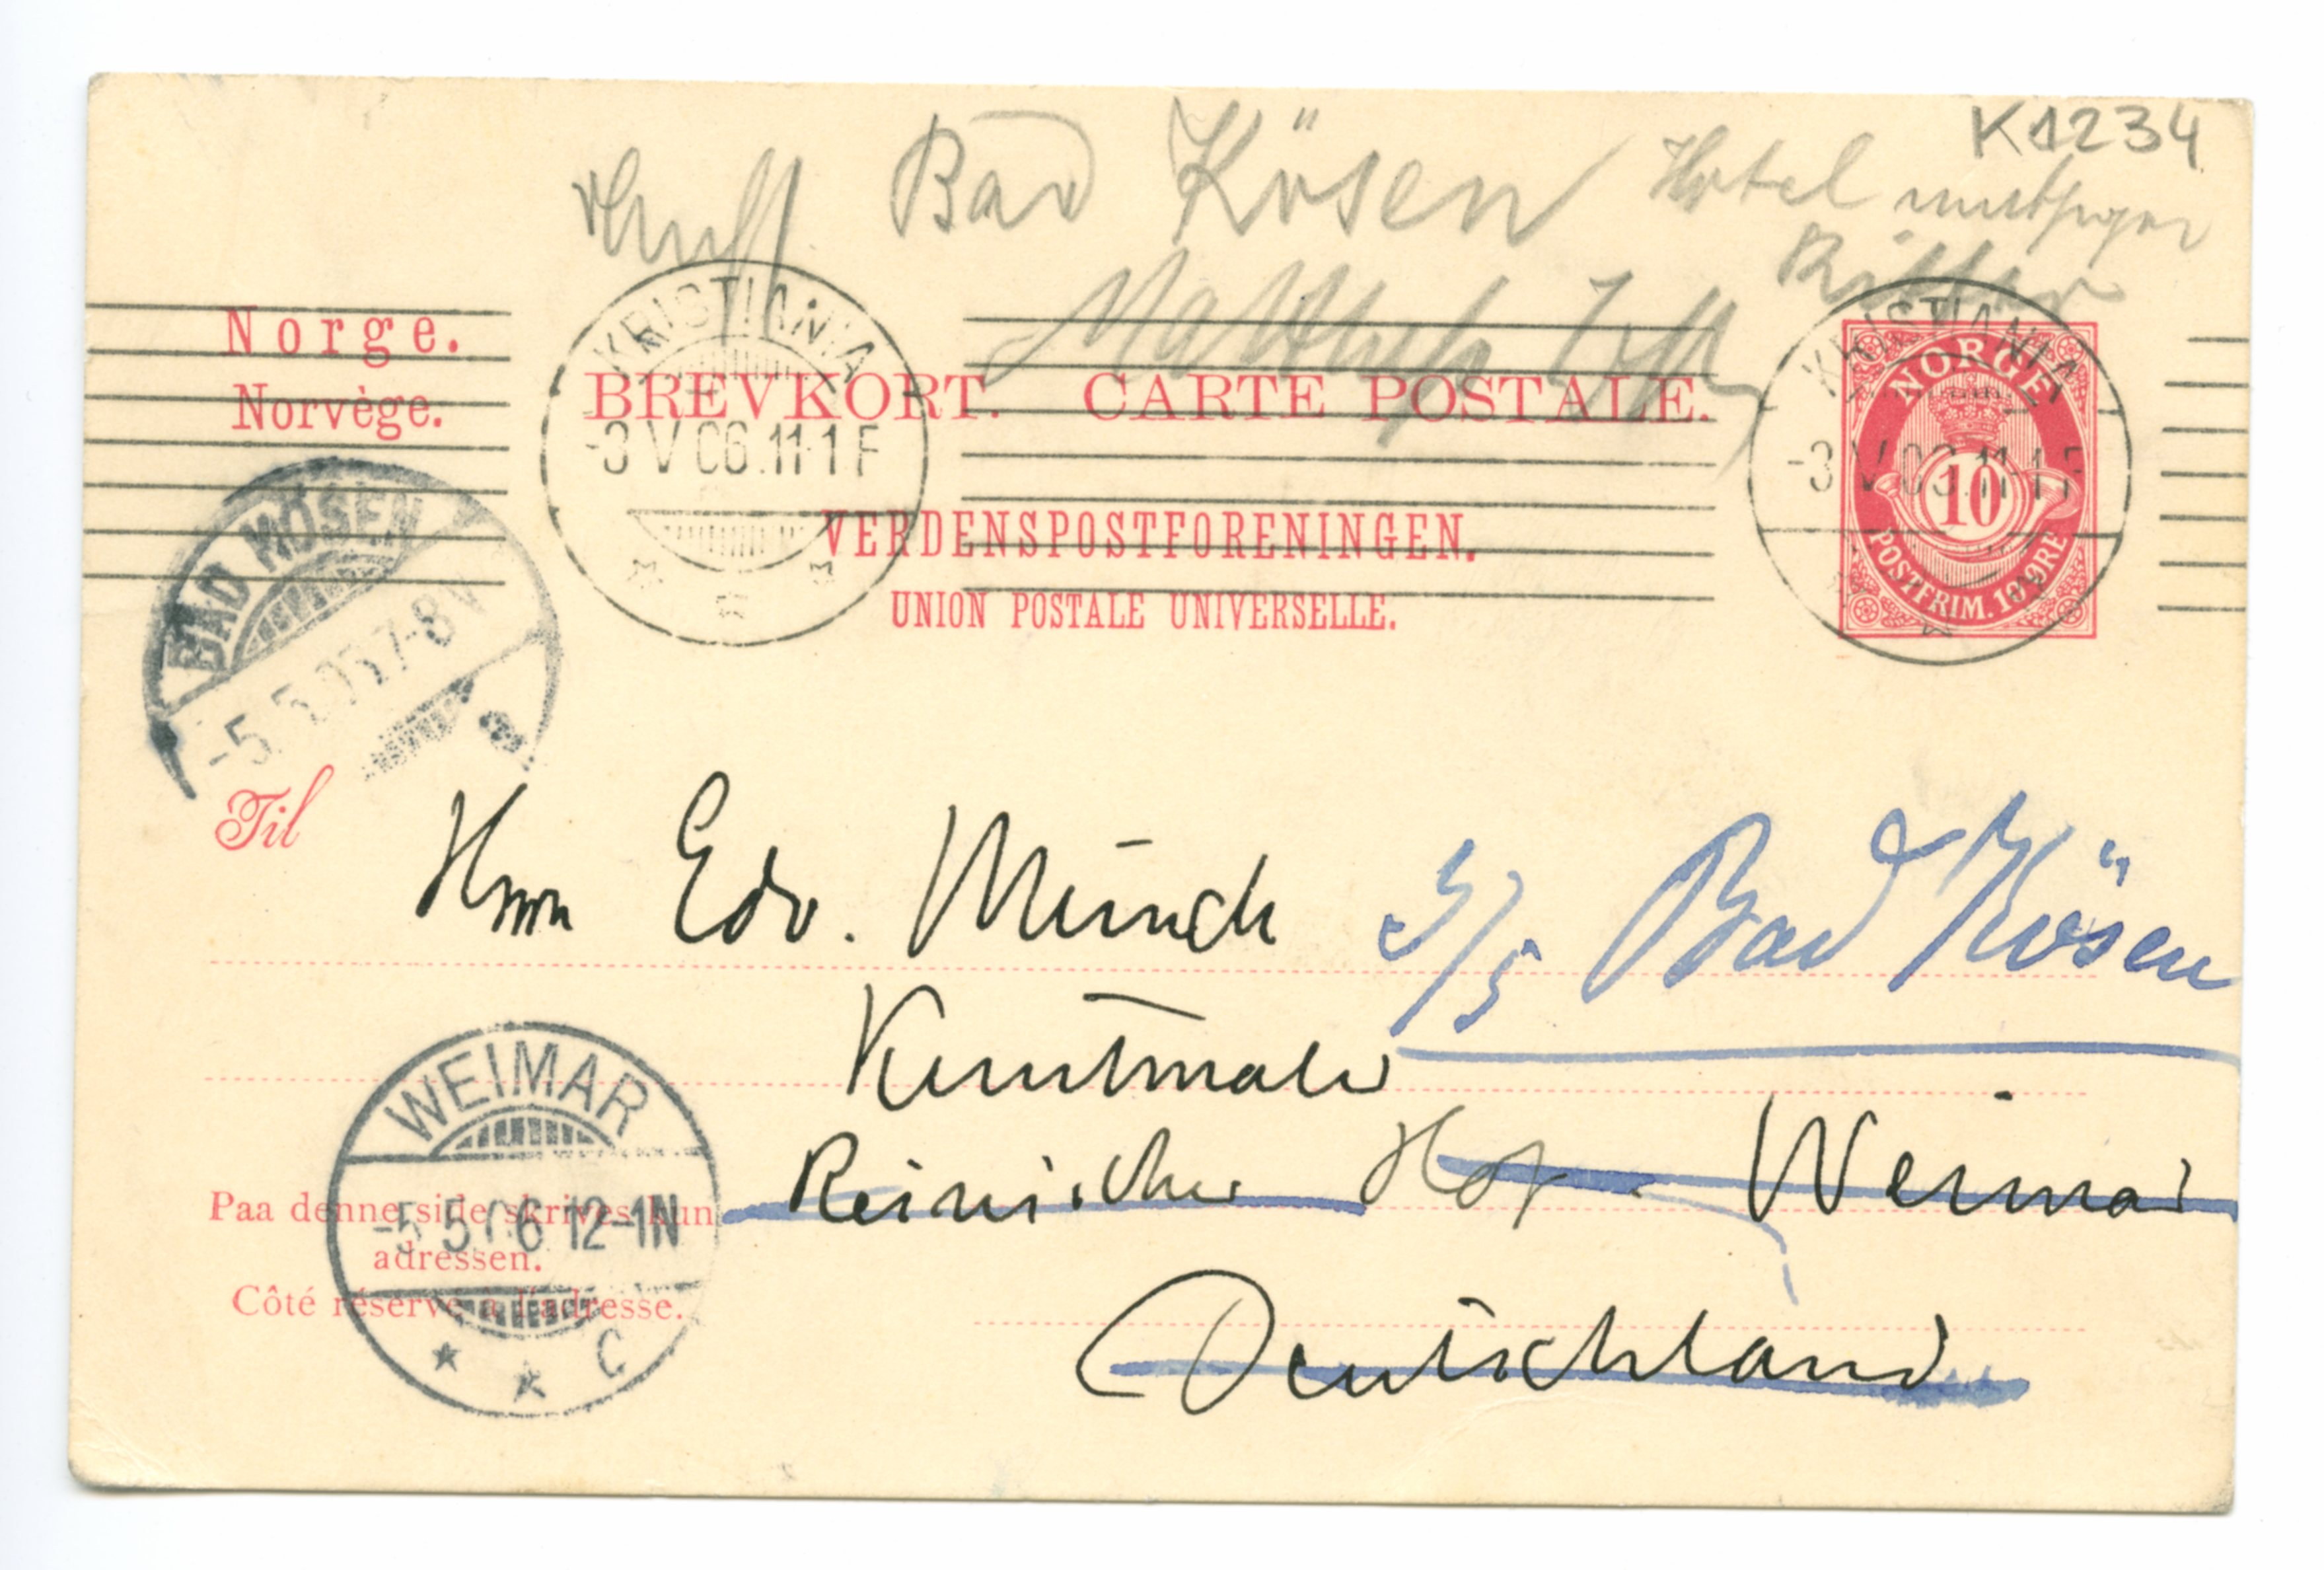 K1234
Bad Kösen Hotel
Ritter
Norge.
Norvège.
BREVKORT. CARTE POSTALE.
VERDENSPOSTFORENINGEN.
UNION POSTALE UNIVERSELLE.
KRISTIANIA
-3 V 06.11-1 F
KRISTIANIA
-3 V 06.11-1 F
NORGE
10
POSTFRIM. 10 ØRE
BAD KÖSEN
-5.5.06 7-8V
a
Til
Herrn Edv. Münch
5/5 Bad Kösen
Kunstmaler
Hof Weimar
Deutschland
WEIMAR
-5.5.06 12-1N
* * C
Paa denne side skrives kun
adressen.
Côté réservé à l'adresse.